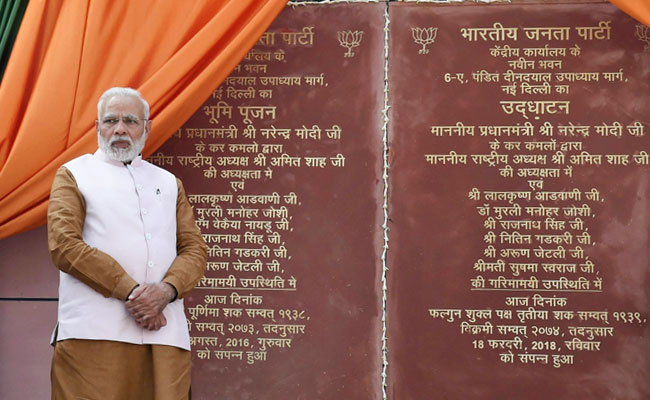 पार्टी
कार्यालय के
भवन
दीनदयाल उपाध्याय मार्ग,
नई दिल्ली का
भूमि पूजन
प्रधानमंत्री श्री नरेन्द्र मोदी जी
के कर कमलो द्वारा
राष्ट्रीय अध्यक्ष श्री अमित शाह जी
की अध्यक्षता मे
एवं
लालकृष्ण आडवाणी जी,
मुरली मनोहर जोशी,
वेंकैया नायडू जी,
राजनाथ सिंह जी,
नितिन गडकरी जी,
अरूण जेटली जी,
गरिमामयी उपस्थिति मे
आज दिनांक
पूर्णिमा शक सम्वत् १९३८,
सम्वत् २०७३, तदनुसार
2016, गुरूवार
को संपन्न हुआ
भारतीय जनता पार्टी
केंद्रीय कार्यालय के
नवीन भवन
6-ए, पंडित दीनदयाल उपाध्याय मार्ग,
नई दिल्ली का
उद्घाटन
माननीय प्रधानमंत्री श्री नरेन्द्र मोदी जी
के कर कमलों द्वारा
माननीय राष्ट्रीय अध्यक्ष श्री अमित शाह जी
की अध्यक्षता में
एवं
श्री लालकृष्ण आडवाणी जी,
डॉ मुरली मनोहर जोशी,
श्री राजनाथ सिंह जी,
श्री नितिन गडकरी जी,
श्री अरूण जेटली जी,
श्रीमती सुषमा स्वराज जी,
की गरिमामयी उपस्थिति में
आज दिनांक
फल्गुन शुक्ल पक्ष तृतीया शक सम्वत् १९३९,
विक्रमी सम्वत् २०७४, तदनुसार
18 फरवरी, 2018, रविवार
को संपन्न हुआ